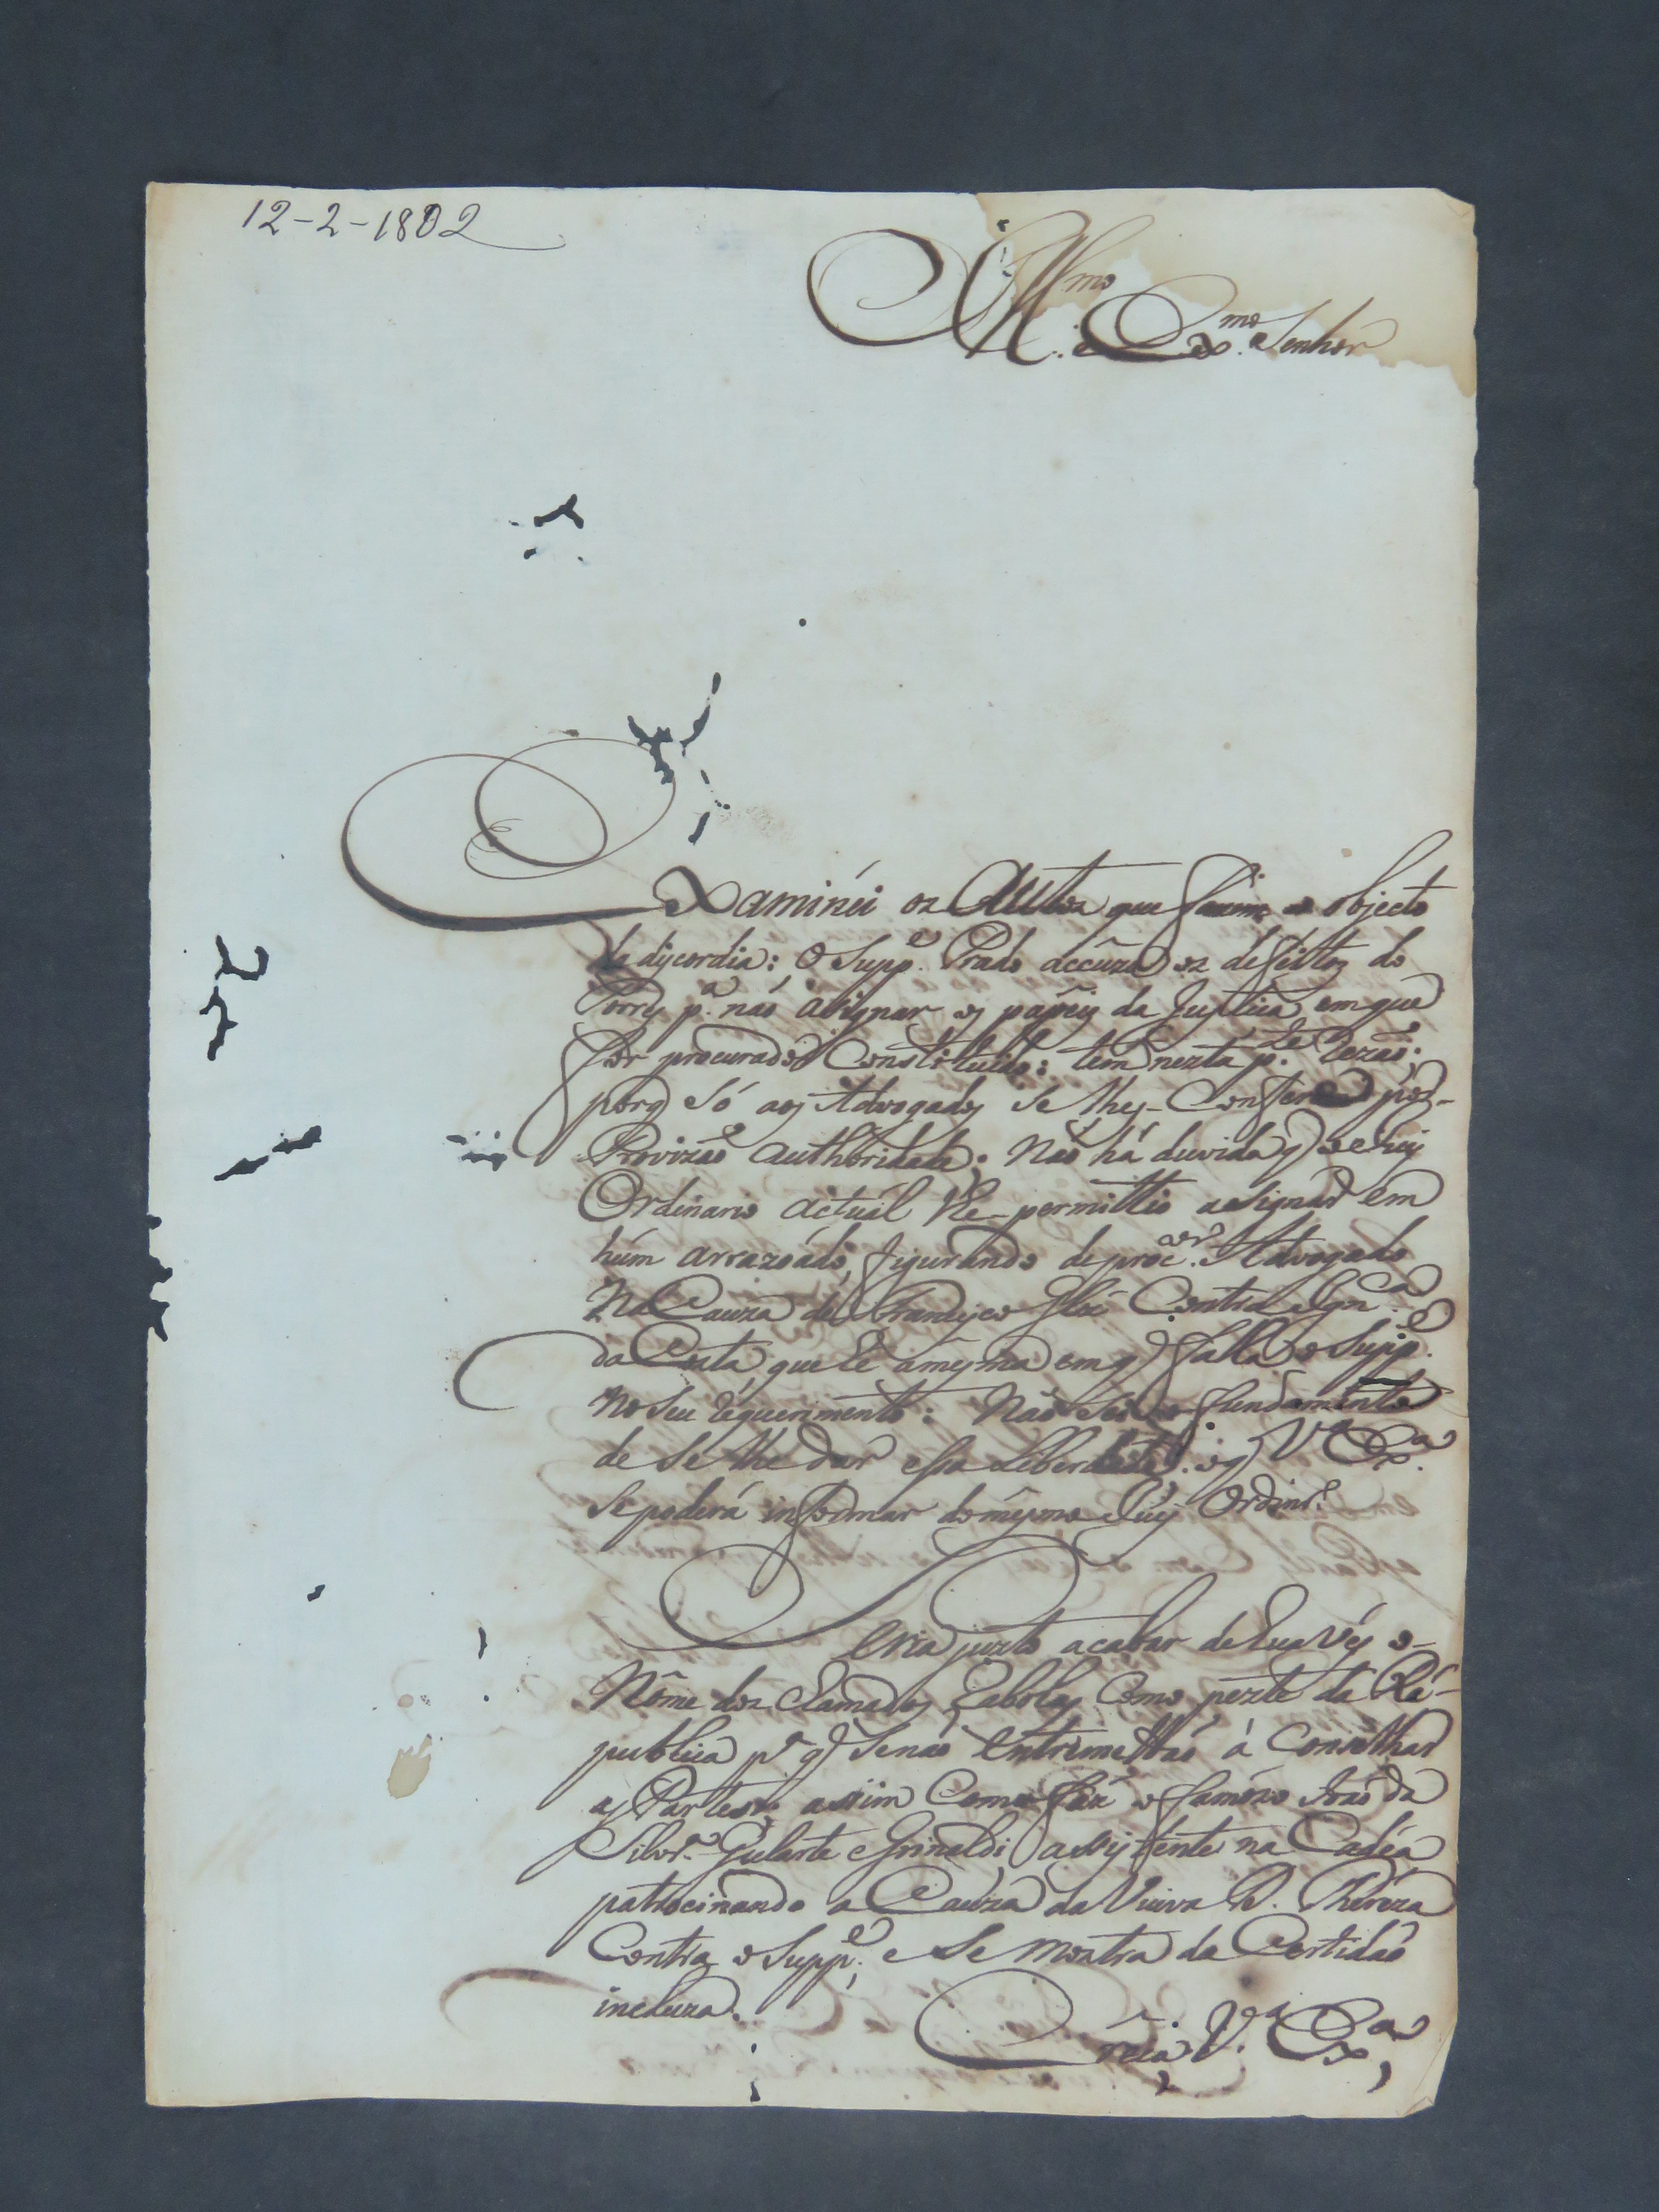 12-2-1802
Ill.mo e Ex.mo Senhor
Examinéi oz Autoz que fazem o objecto
da discordia: O Supp.e Prado accuza oz defeitos do
Torres p.a não asignar os papeis da Justiça em que
for procurador Constituido: tem nezta p.te rezaõ;
porq só aos Advogados se lhes Confere por-
Provizaõ authoridade: Naõ há duvida q o Juis
Ordinario actuál lhe permittio asignar em
húm arrazoádo, figurando de proc.or Advogado
Na Cauza de Francisco José Contra Ign.ca
da Costa, que hé amesma em q falla o Supp.e
No seu requerimento: Naõ sei o fundamento
de se lhe dar essa Liberdade: oq V.a Ex.a
se poderá informar domesmo Juis Ordinr.o
Seria juzto acabar de hua vez o-
Nôme doz chamados Rabolas Como pezte da Ré-
publica p.a q senaõ entremettaõ á Conselhar
as Partes, assim Como fáz o famôzo Joaõ da
Silvr.a Gularte e Grinaldi assistente na Cadéa
patrocinando a Cauza da Viuva D. Thereza
Contra o Supp.e, e Se montra da Certidaõ
incluza.
Creia, V.a Ex.a,